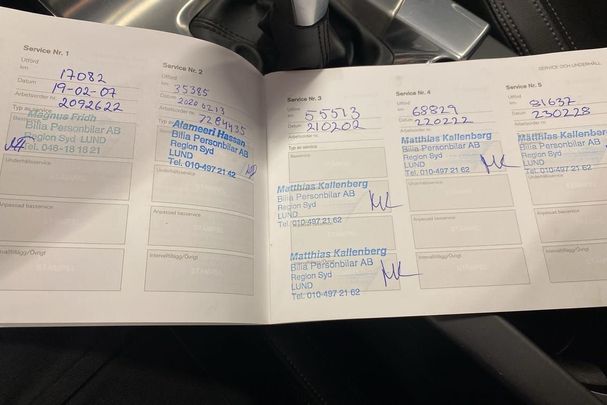 Service Nr. 1
Utförd
km
17082
Datum
19-02-07
Arbetsorder nr.
2092622
Typ av service
Magnus Fridh
Bilia Personbilar AB
Region Syd LUND
Tel. 046-18 18 21
Underhållsservice
Anpassad basservice
Intervalltillägg/Övrigt
Service Nr. 2
Utförd
km
35385
Datum
20200213
Arbetsorder nr.
7284435
Alameeri Hassan
Bilia Personbilar AB
Region Syd
LUND
Tel. 010-497 21 62
Underhållsservice
Anpassad basservice
Intervalltillägg/Övrigt
Service Nr. 3
Utförd
km
55513
Datum
210202
Arbetsorder nr.
Typ av service
Basservice
Matthias Kallenberg
Bilia Personbilar AB
Region Syd
LUND
Tel. 010-497 21 62
MK
Matthias Kallenberg
Bilia Personbilar AB
Region Syd
LUND
Tel. 010-497 21 62
MK
SERVICE OCH UNDERHÅLL
Service Nr. 4
Utförd
km
68829
Datum
220222
Arbetsorder nr.
Matthias Kallenberg
Bilia Personbilar AB
Region Syd
LUND
Tel. 010-497 21 62
MK
Underhållsservice
Anpassad basservice
Intervalltillägg/Övrigt
Service Nr. 5
Utförd
km
81637
Datum
230228
Arbetsorder nr.
Matthias Kallenberg
Bilia Personbilar AB
Region Syd
LUND
Tel. 010-497 21 62
Underhållsservice
Anpassad basservice
Intervalltillägg/Övrigt